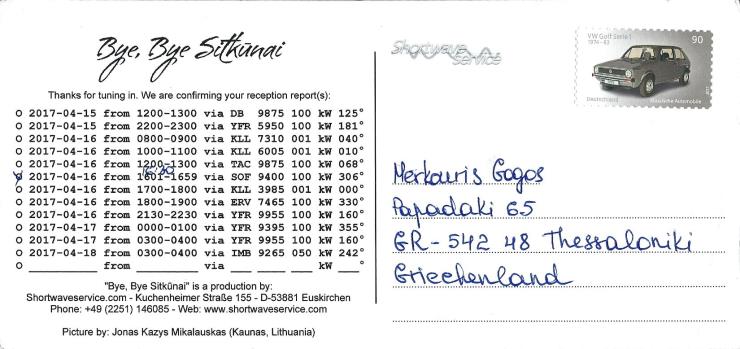 Bye, Bye Sitkūnai
Thanks for tuning in. We are confirming your reception report(s):
O 2017-04-15 from 1200-1300 via DB 9875 100 kW 125°
O 2017-04-15 from 2200-2300 via YFR 5950 100 kW 181°
O 2017-04-16 from 0800-0900 via KLL 7310 001 kW 040°
O 2017-04-16 from 1000-1100 via KLL 6005 001 kW 010°
O 2017-04-16 from 1200-1300 via TAC 9875 100 kW 068°
16:30
O 2017-04-16 from 1601-1659 via SOF 9400 100 kW 306°
O 2017-04-16 from 1700-1800 via KLL 3985 001 kW 000°
O 2017-04-16 from 1800-1900 via ERV 7465 100 kW 330°
O 2017-04-16 from 2130-2230 via YFR 9955 100 kW 160°
O 2017-04-17 from 0000-0100 via YFR 9395 100 kW 355°
O 2017-04-17 from 0300-0400 via YFR 9955 100 kW 160°
O 2017-04-18 from 0300-0400 via IMB 9265 050 kW 242°
O ________ from ________ via ___ ____ ___ kW ___°
"Bye, Bye Sitkūnai" is a production by:
Shortwaveservice.com - Kuchenheimer Straße 155 - D-53881 Euskirchen
Phone: +49 (2251) 146085 - Web: www.shortwaveservice.com
Picture by: Jonas Kazys Mikalauskas (Kaunas, Lithuania)
Shortwave
service
VW Golf Serie I
1974-83
90
Deutschland
Klassische Automobile
2017
Merkouris Gogos
Papadaki 65
GR-542 48 Thessaloniki
Griechenland